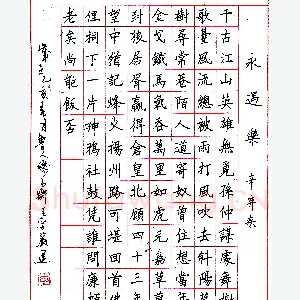 永遇樂 辛弃疾
千古江山英雄無覓孫仲謀處舞榭
歌臺風流總被雨打風吹去斜陽草
樹尋常巷陌人道寄奴曾住想當年
金戈鐵馬氣吞萬里如虎元嘉草草
封狼居胥贏得倉皇北顧四十三年
望中猶記烽火揚州路可堪回首佛
狸祠下一片神鴉社鼓憑誰問廉頗
老矣尚能飯否